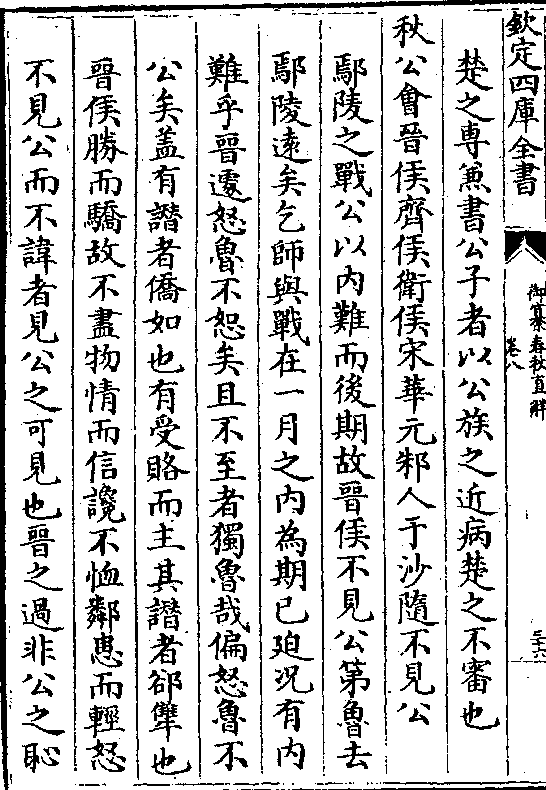 欽定四庫全書
御纂春秋直解
卷八
三十六
楚之專兼書公子者以公族之近病楚之不審也
秋公會晉侯齊侯衛侯宋華元邾人于沙隨不見公
鄢陵之戰公以内難而後期故晉侯不見公第魯去
鄢陵逺矣乞師與戰在一月之内為期已廹况有内
難乎晉遽怒魯不恕矣且不至者獨魯哉偏怒魯不
公矣盖有譖者僑如也有受賂而主其譖者郤犨也
晉侯勝而驕故不盡物情而信讒不恤鄰患而輕怒
不見公而不諱者見公之可見也晉之過非公之恥